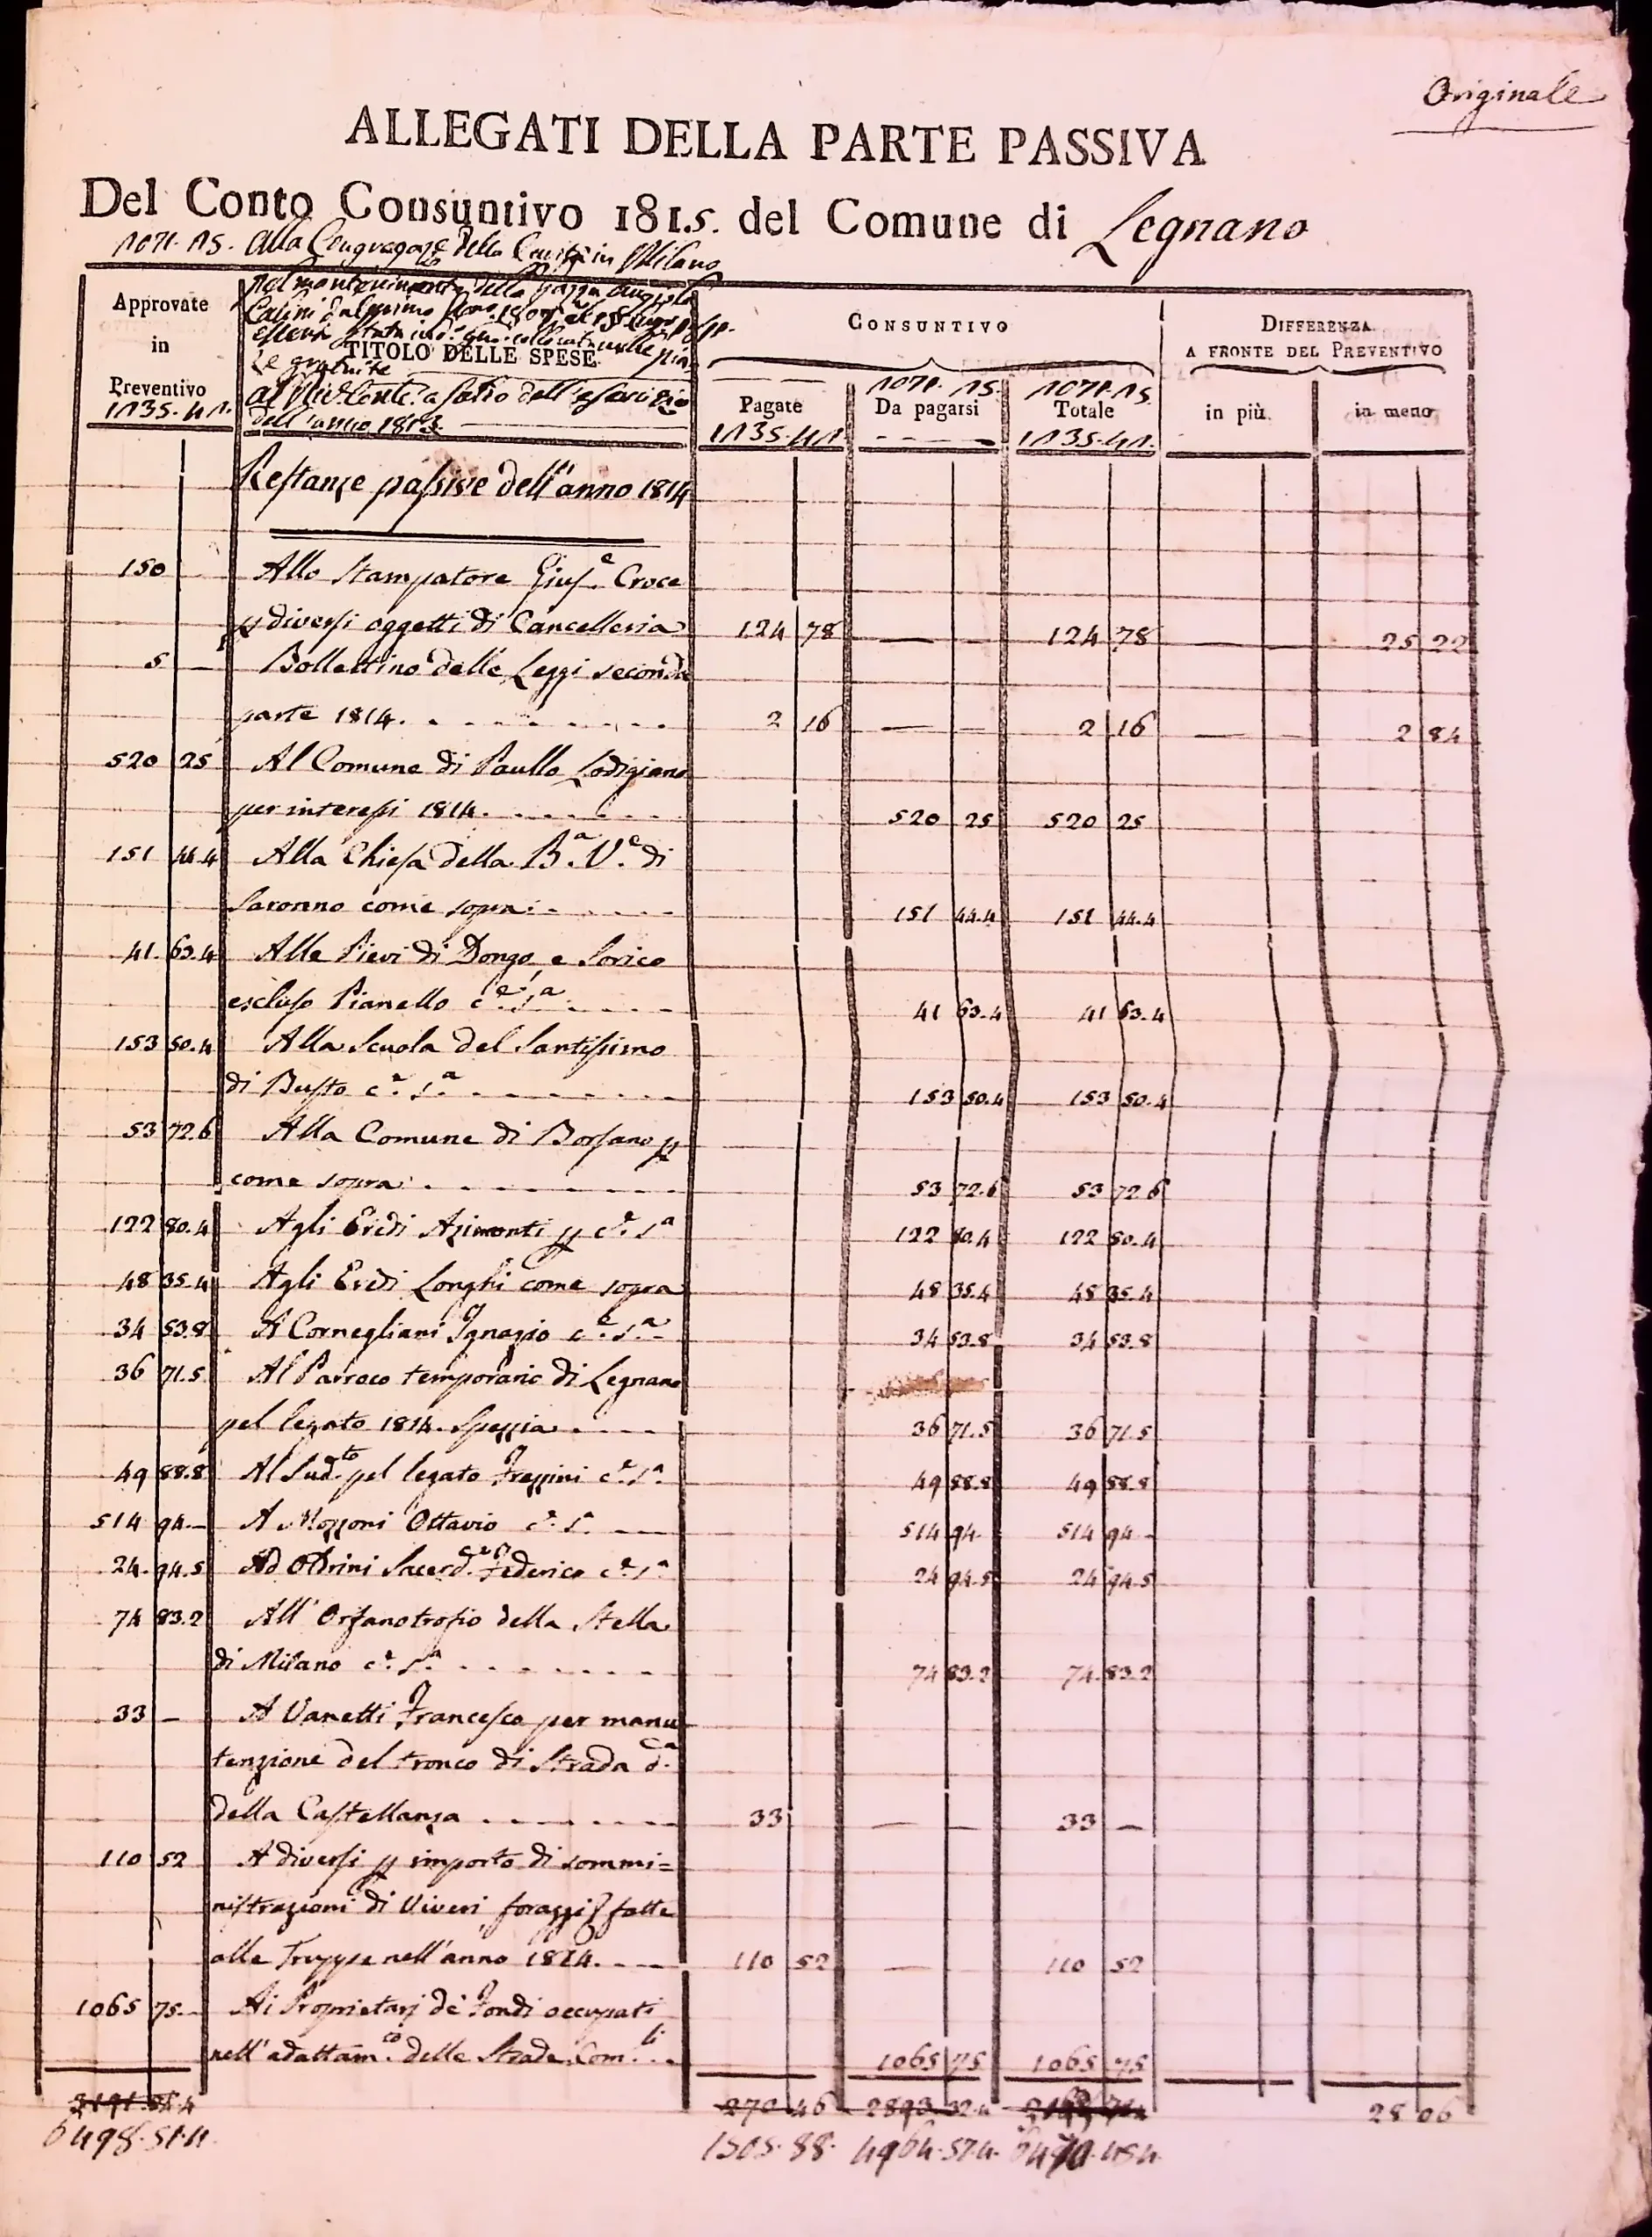 Originale
ALLEGATI DELLA PARTE PASSIVA
Del Conto Consuntivo 1815. del Comune di Legnano
alla Congregaze della Carità in Milano
pel mantenimento della pazza
TITOLO DELLE SPESE
Approvate in Preventivo 1135.41.
CONSUNTIVO
DIFFERENZA A FRONTE DEL PREVENTIVO
dell'anno 1813.
Pagate 1135.41 Da pagarsi Totale 1135.41. in più in meno
Restanze passive dell'anno 1814
150 Allo Stampatore Giuse. Croce
diversi oggetti di Cancelleria 124 78 — — 124 78 — — 25 22
5 — Bollettino delle Leggi seconda
parte 1814. 2 16 — — 2 16 — 2 84
520 25 Al Comune di Paullo Lodigiano
per interessi 1814. 520 25 520 25
151 44.4 Alla Chiesa della Ba. Ve. di
Saronno come sopra 151 44.4 151 44.4
41. 63.4 Alle Pievi di Dongo, e Sorico
escluso Pianello ce. sa. 41 63.4 41 63.4
153 50.4 Alla Scuola del Santissimo
di Busto ce. sa. 153 50.4 153 50.4
53 72.6 Alla Comune di Borsano p
come sopra 53 72.6 53 72.6
122 80.4 Agli Eredi Azimonti p ce. sa 122 80.4 122 80.4
48 35.4 Agli Eredi Longhi come sopra 48 35.4 48 35.4
34 53.8 A Cornegliani Ignazio ce. sa. 34 53.8 34 53.8
36 71.5 Al Parroco temporario di Legnano
pel legato 1814. Spezzia 36 71.5 36 71.5
49 88.8 Al Sudto. pel legato Frezzini ce. sa. 49 88.8 49 88.8
514 94— A Mozzoni Ottavio ce. sa. — 514 94 514 94 -
24. 94.5 Ad Oldrini Sacerd. Federico ce. sa 24 94.5 24 94.5
74 83.2 All' Orfanotrofio della Stella
di Milano ce. sa. 74 83.2 74. 83.2
33 — A Vanetti Francesco per manu
tenzione del tronco di Strada da.
della Castellanza 33 — — 33 —
110 52 A diversi p importo di sommi=
nistrazioni di Viveri foraggi fatte
alle Truppe nell'anno 1814. 110 52 — 110 52
1065 75— Ai Proprietarj de' Fondi occupati
nell' adattamto. delle Strade Comli. 1065 75 1065 75
270 46 2893 32.4 28 06
6498.51.4. 1505.88. 4964.57.4.